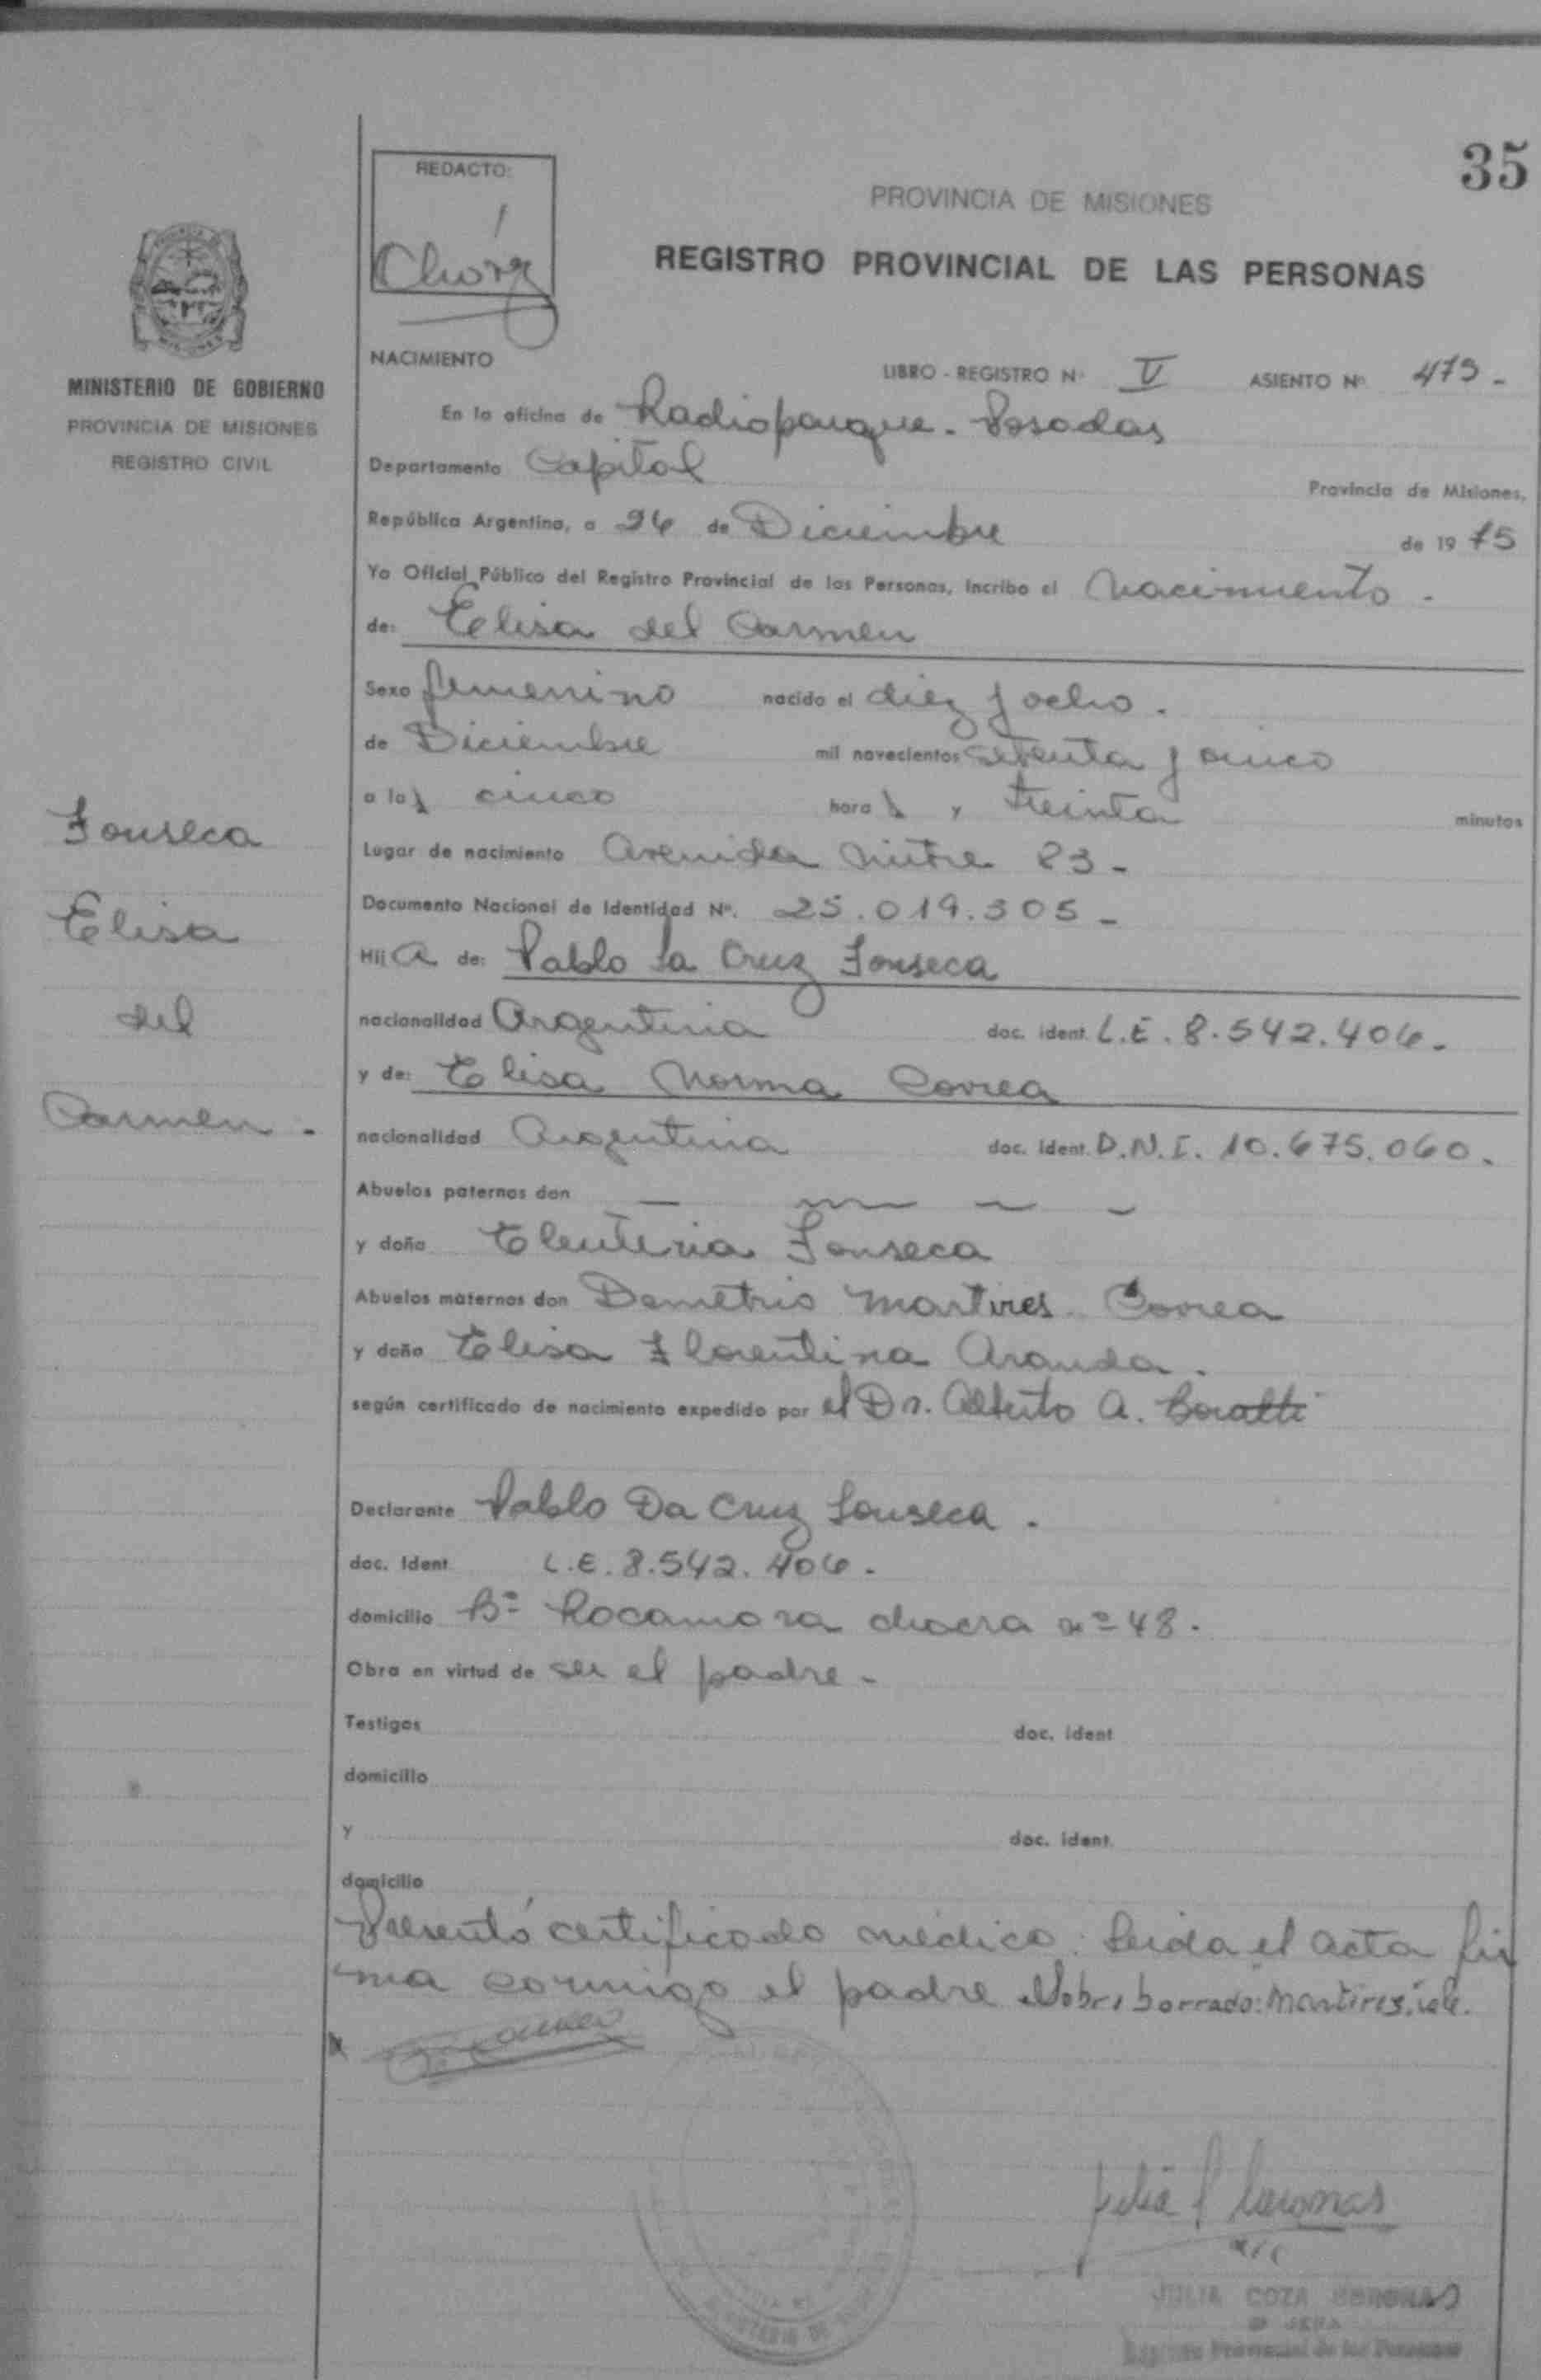 35
REDACTO:
PROVINCIA DE MISIONES
REGISTRO PROVINCIAL DE LAS PERSONAS
MINISTERIO DE GOBIERNO
PROVINCIA DE MISIONES
REGISTRO CIVIL
NACIMIENTO LIBRO - REGISTRO Nº V ASIENTO Nº 479 -
En la oficina de Radioparque - Posadas
Departamento Capital Provincia de Misiones,
República Argentina, a 26 de Diciembre de 19 75
Yo Oficial Público del Registro Provincial de las Personas, incribo el Nacimiento .
de: Elisa del Carmen
Sexo femenino nacido el diez y ocho .
de Diciembre mil novecientos setenta y cinco
a las cinco horas y treinta minutos
Lugar de nacimiento Avenida Mitre 23 -
Documento Nacional de Identidad Nº. 25.019.305 -
Hija de: Pablo Da Cruz Fonseca
nacionalidad Argentina doc. ident. L.E. 8.542.406 -
y de: Elisa Norma Correa
nacionalidad Argentina doc. ident. D.N.I. 10.675.060 -
Abuelos paternos don
y doña Eleuteria Fonseca
Abuelos maternos don Demetrio Martires Correa
y doña Elisa Florentina Aranda .
según certificado de nacimiento expedido por el Dr. Alberto A.
Declarante Pablo Da Cruz Fonseca .
doc. Ident. L.E. 8.542.406 -
domicilio Bº Rocamora chacra nº 48 .
Obra en virtud de ser el padre -
Testigos doc. ident
domicilio
y doc. ident.
domicilio
Presentó certificado médico. Leida el acta fir
ma conmigo el padre. Sobre borrado: Martires, vale.
Fonseca
Elisa
del
Carmen -
JULIA COZA CORONAS
JEFA
Registro Provincial de las Personas